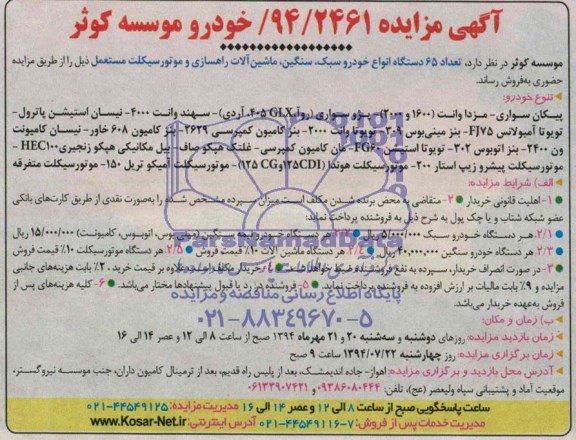 آگهی مزایده ۹۴/۲۴۶۱/ خودرو موسسه کوثر
موسسه کوثر در نظر دارد، تعداد ۶۵ دستگاه انواع خودرو سبک، سنگین، ماشین‌آلات راهسازی و موتورسیکلت مستعمل ذیل را از طریق مزایده
حضوری به‌فروش رساند.
تنوع خودرو:
پیکان سواری- مزدا وانت (۱۶۰۰ و ۲۰۰۰)- پژو سواری (روآ، GLX ۴۰۵، آردی) - سهند وانت ۴۰۰۰- نیسان استیشن پاترول-
تویوتا آمبولانس FJ۷۵- بنز مینی‌بوس ۳۰۹- تویوتا وانت ۲۰۰۰- بنز کامیون کمپرسی ۲۶۲۴- بنز کامیون ۶۰۸ خاور- نیسان کامیونت
ون ۲۴۰۰- بنز اتوبوس ۳۰۲- تویوتا استیشن FG۶۰- مان کامیون کمپرسی- غلتک هپکو صاف- بیل مکانیکی هپکو زنجیری HEC۱۰۰-
موتورسیکلت پیشرو زیپ استار ۲۰۰- موتورسیکلت هوندا (CDI۱۲۵ و CG ۱۲۵)- موتورسیکلت آمیکو تریل ۱۵۰- موتورسیکلت متفرقه
الف) شرایط مزایده:
۱- اهلیت قانونی خریدار ۲- متقاضی به محض برنده شدن مکلف است میزان سپرده مشخص شده را به‌صورت نقدی از طریق کارت‌های بانکی
عضو شبکه شتاب و یا چک پول به شرح ذیل به فروشنده پرداخت نماید:
۲/۱. هر دستگاه خودرو سبک ۵/۰۰۰/۰۰۰ ریال ۲/۲. هر دستگاه خودرو نیمه سنگین (مینی‌بوس، اتوبوس، کامیونت) ۱۵/۰۰۰/۰۰۰ ریال
۲/۳. هر دستگاه خودرو سنگین ۲۰/۰۰۰/۰۰۰ ریال ۲/۴. هر دستگاه ماشین آلات ۱۰٪ قیمت فروش ۲/۵. هر دستگاه موتورسیکلت ۱۰٪ قیمت فروش
۳- در صورت انصراف خریدار، سپرده به نفع فروشنده ضبط خواهد شد. ۴- خریدار مکلف است علاوه بر قیمت خرید، ۲٪ بابت هزینه‌های جانبی
مزایده و ۹٪ بابت مالیات بر ارزش افزوده به فروشنده پرداخت نماید. ۵- فروشنده در رد یا قبول پیشنهادها مختار می‌باشد. ۶- کلیه هزینه‌های پس از
فروش به‌عهده خریدار می‌باشد.
ParsNamadData
پایگاه اطلاع رسانی مناقصه و مزایده
۰۲۱-۸۸۳۴۹۶۷۰-۵
ب) زمان و مکان:
زمان بازدید مزایده: روزهای دوشنبه و سه‌شنبه ۲۰ و ۲۱ مهرماه ۱۳۹۴ صبح از ساعت ۸ الی ۱۲ و عصر ۱۴ الی ۱۶
زمان برگزاری مزایده: روز چهارشنبه ۱۳۹۴/۰۷/۲۲ ساعت ۹ صبح
آدرس محل بازدید و برگزاری مزایده: اهواز- جاده اندیمشک، بعد از پلیس راه قدیم، بعد از ترمینال کامیون داران، جنب موسسه نیروگستر،
موقعیت آماد و پشتیبانی سپاه ولیعصر (عج)، تلفن: ۰۹۳۸۶۰۸۰۴۴۴ و ۰۶۱۳۳۹۰۷۶۲۱
ساعت پاسخگویی صبح از ساعت ۸ الی ۱۲ و عصر ۱۴ الی ۱۶ مدیریت مزایده: ۰۲۱-۴۴۵۴۹۱۲۵
مدیریت خدمات پس از فروش: ۷-۰۲۱-۴۴۵۴۹۱۱۶ آدرس اینترنتی: www.Kosar-Net.ir